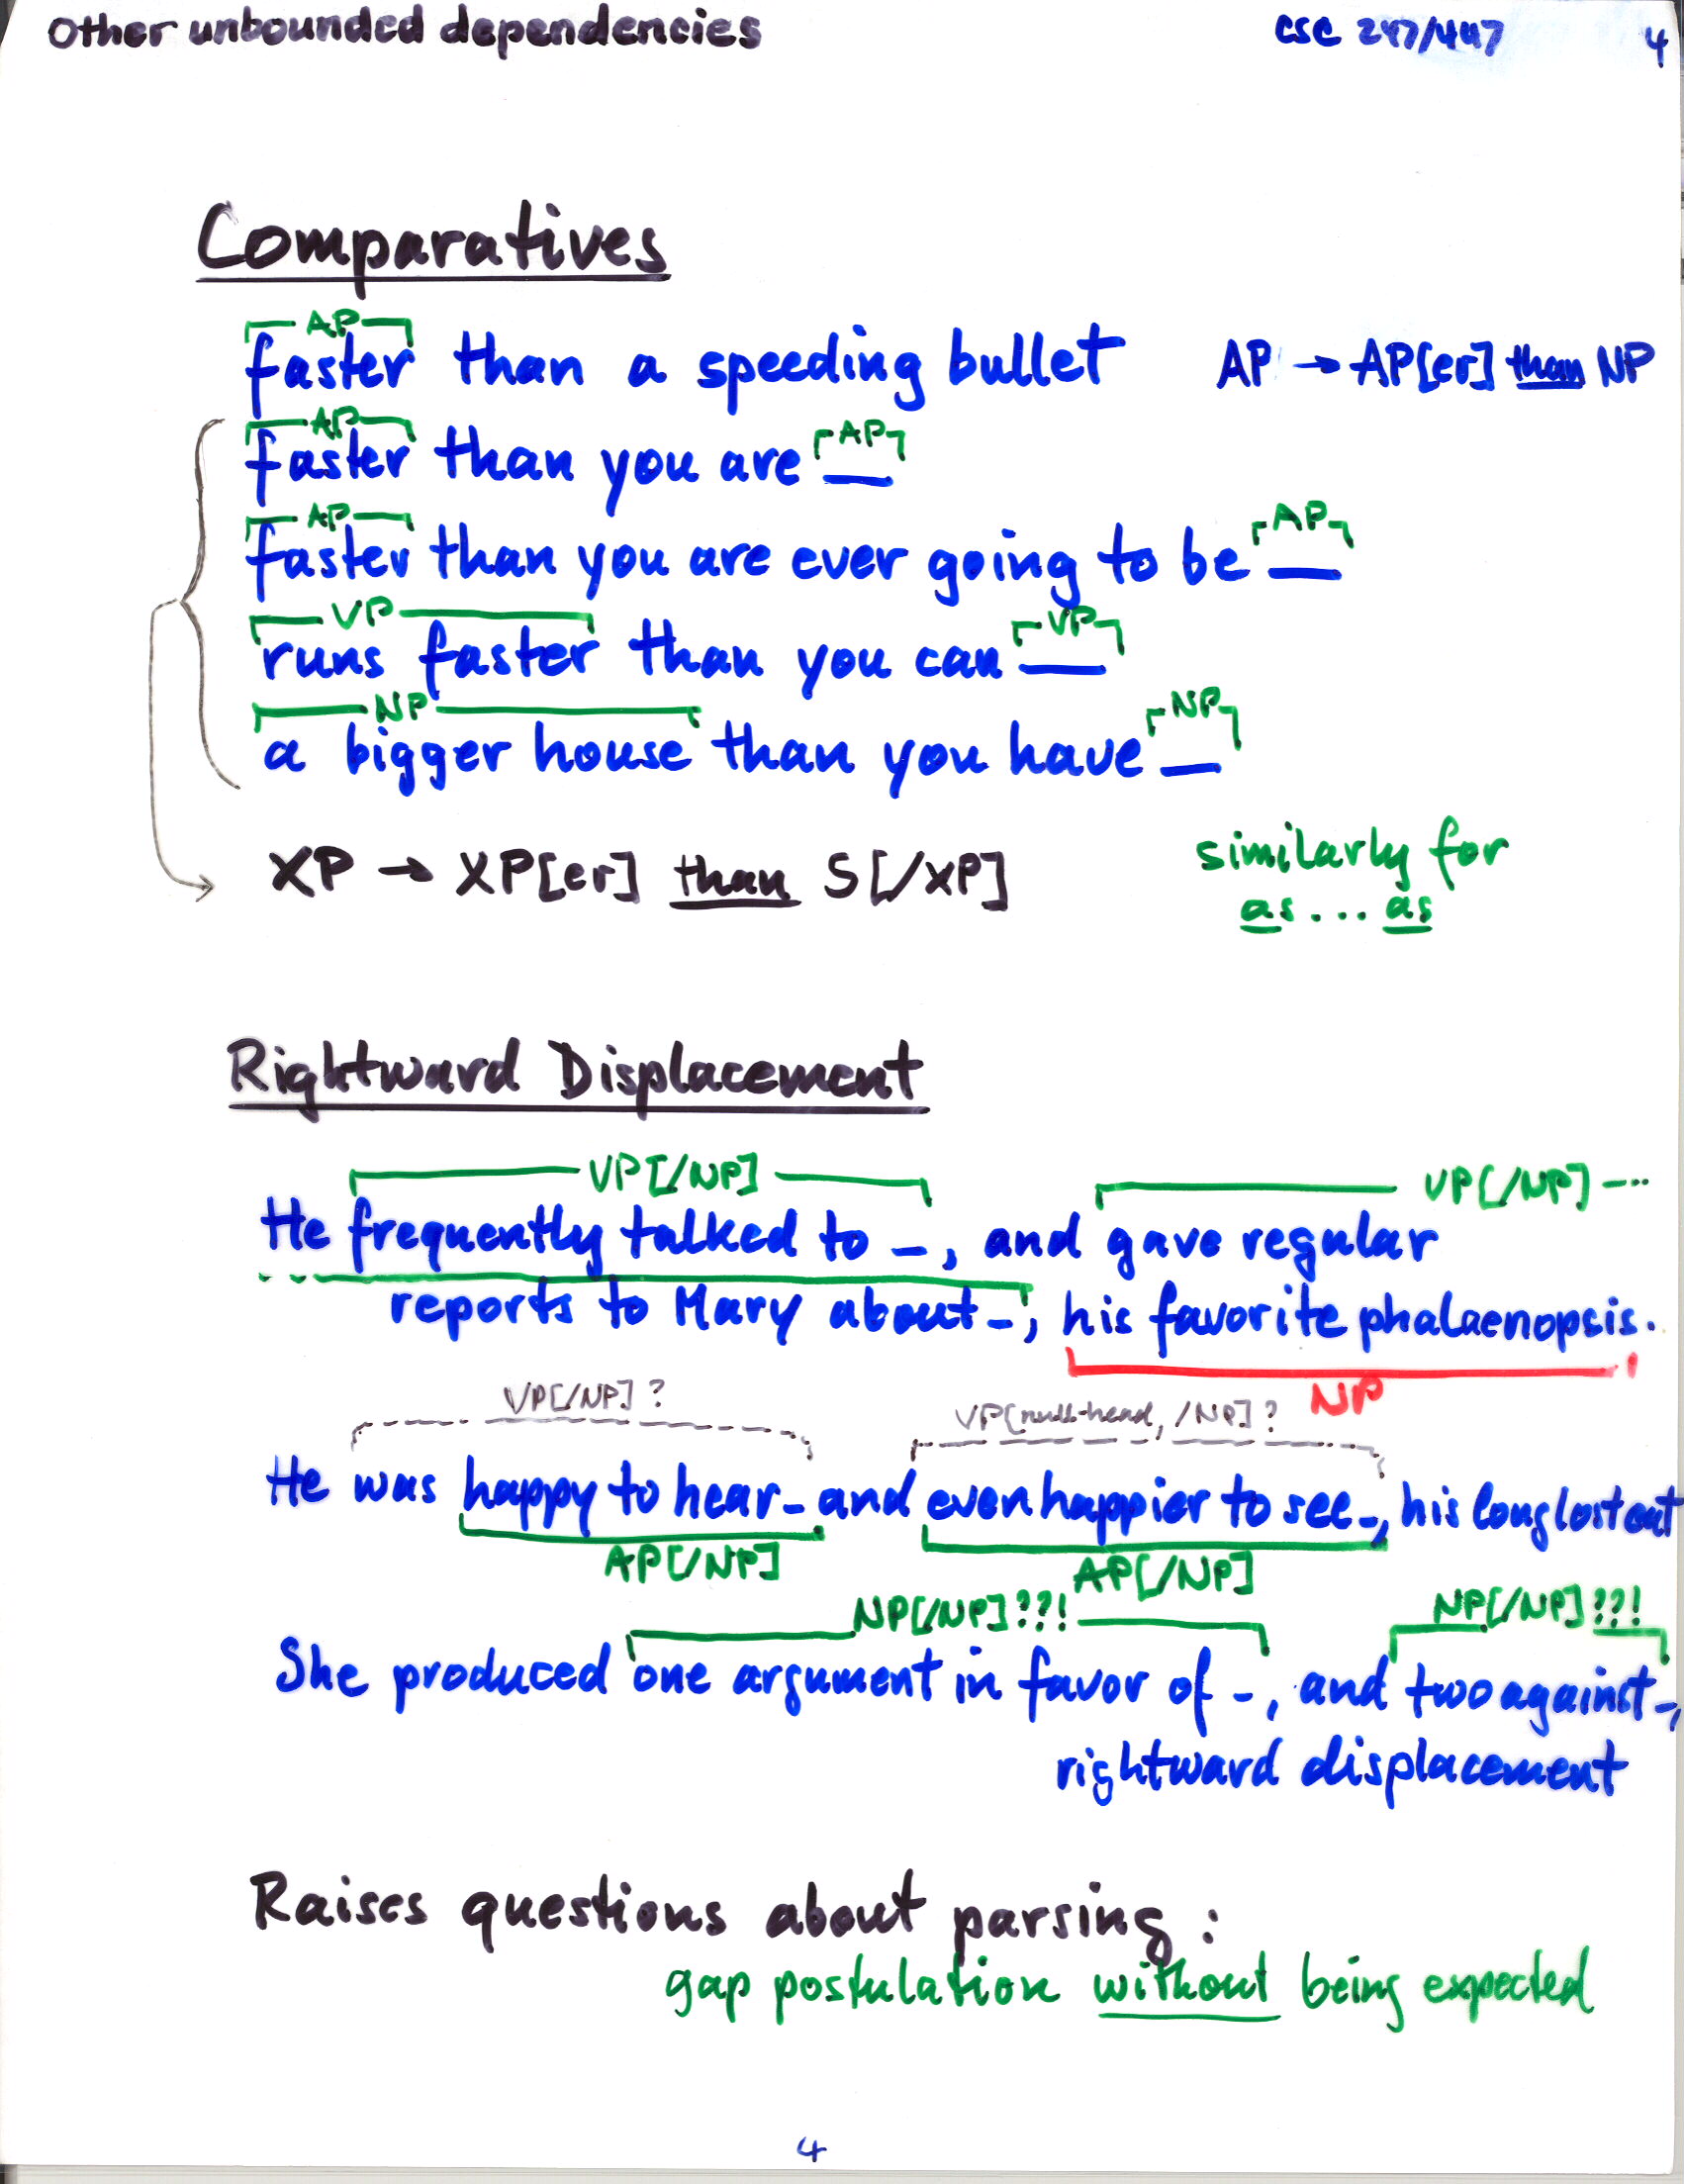 Other unbounded dependencies CSC 247/447 4
Comparatives
AP
faster than a speeding bullet AP → AP[er] than NP
AP AP
faster than you are __
AP AP
faster than you are ever going to be __
VP VP
runs faster than you can __
NP NP
a bigger house than you have __
XP → XP[er] than S[/XP]
similarly for
as ... as
Rightward Displacement
VP[/NP] VP[/NP] ...
He frequently talked to _, and gave regular
reports to Mary about _, his favorite phalaenopsis.
NP
VP[/NP]? VP[null-head, /NP]?
He was happy to hear _ and even happier to see _, his long lost cat
AP[/NP] AP[/NP]
NP[/NP]??! NP[/NP]??!
She produced one argument in favor of _, and two against _,
rightward displacement
Raises questions about parsing:
gap postulation without being expected
4